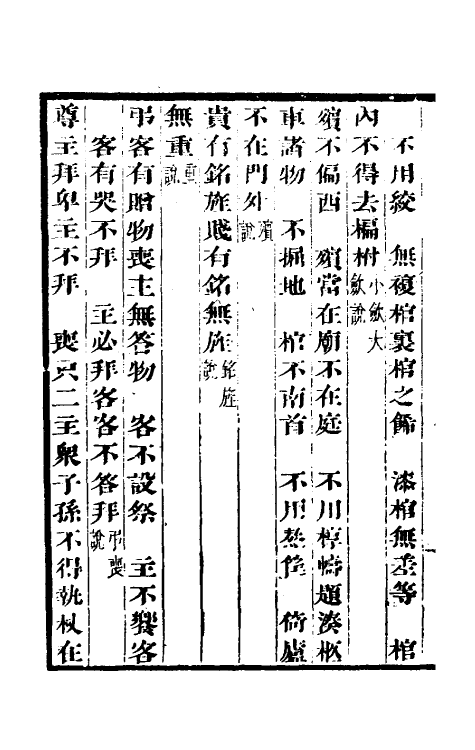 不用絞　無複棺裏棺之飾　漆棺無差等　棺
內不得去楄柎小斂大斂說
殯不偏西　殯當在廟不在庭　不用椁幬題湊柩
車諸物　不掘地　棺不南首　不用熬魚　倚廬
不在門外殯說
貴有銘旌賤有銘無旌銘旌說
無重重說
弔客有賵物喪主無答物　客不設祭　主不饗客
客有哭不拜　主必拜客客不答拜弔喪說
尊主拜卑主不拜　喪只二主衆子孫不得執杖在